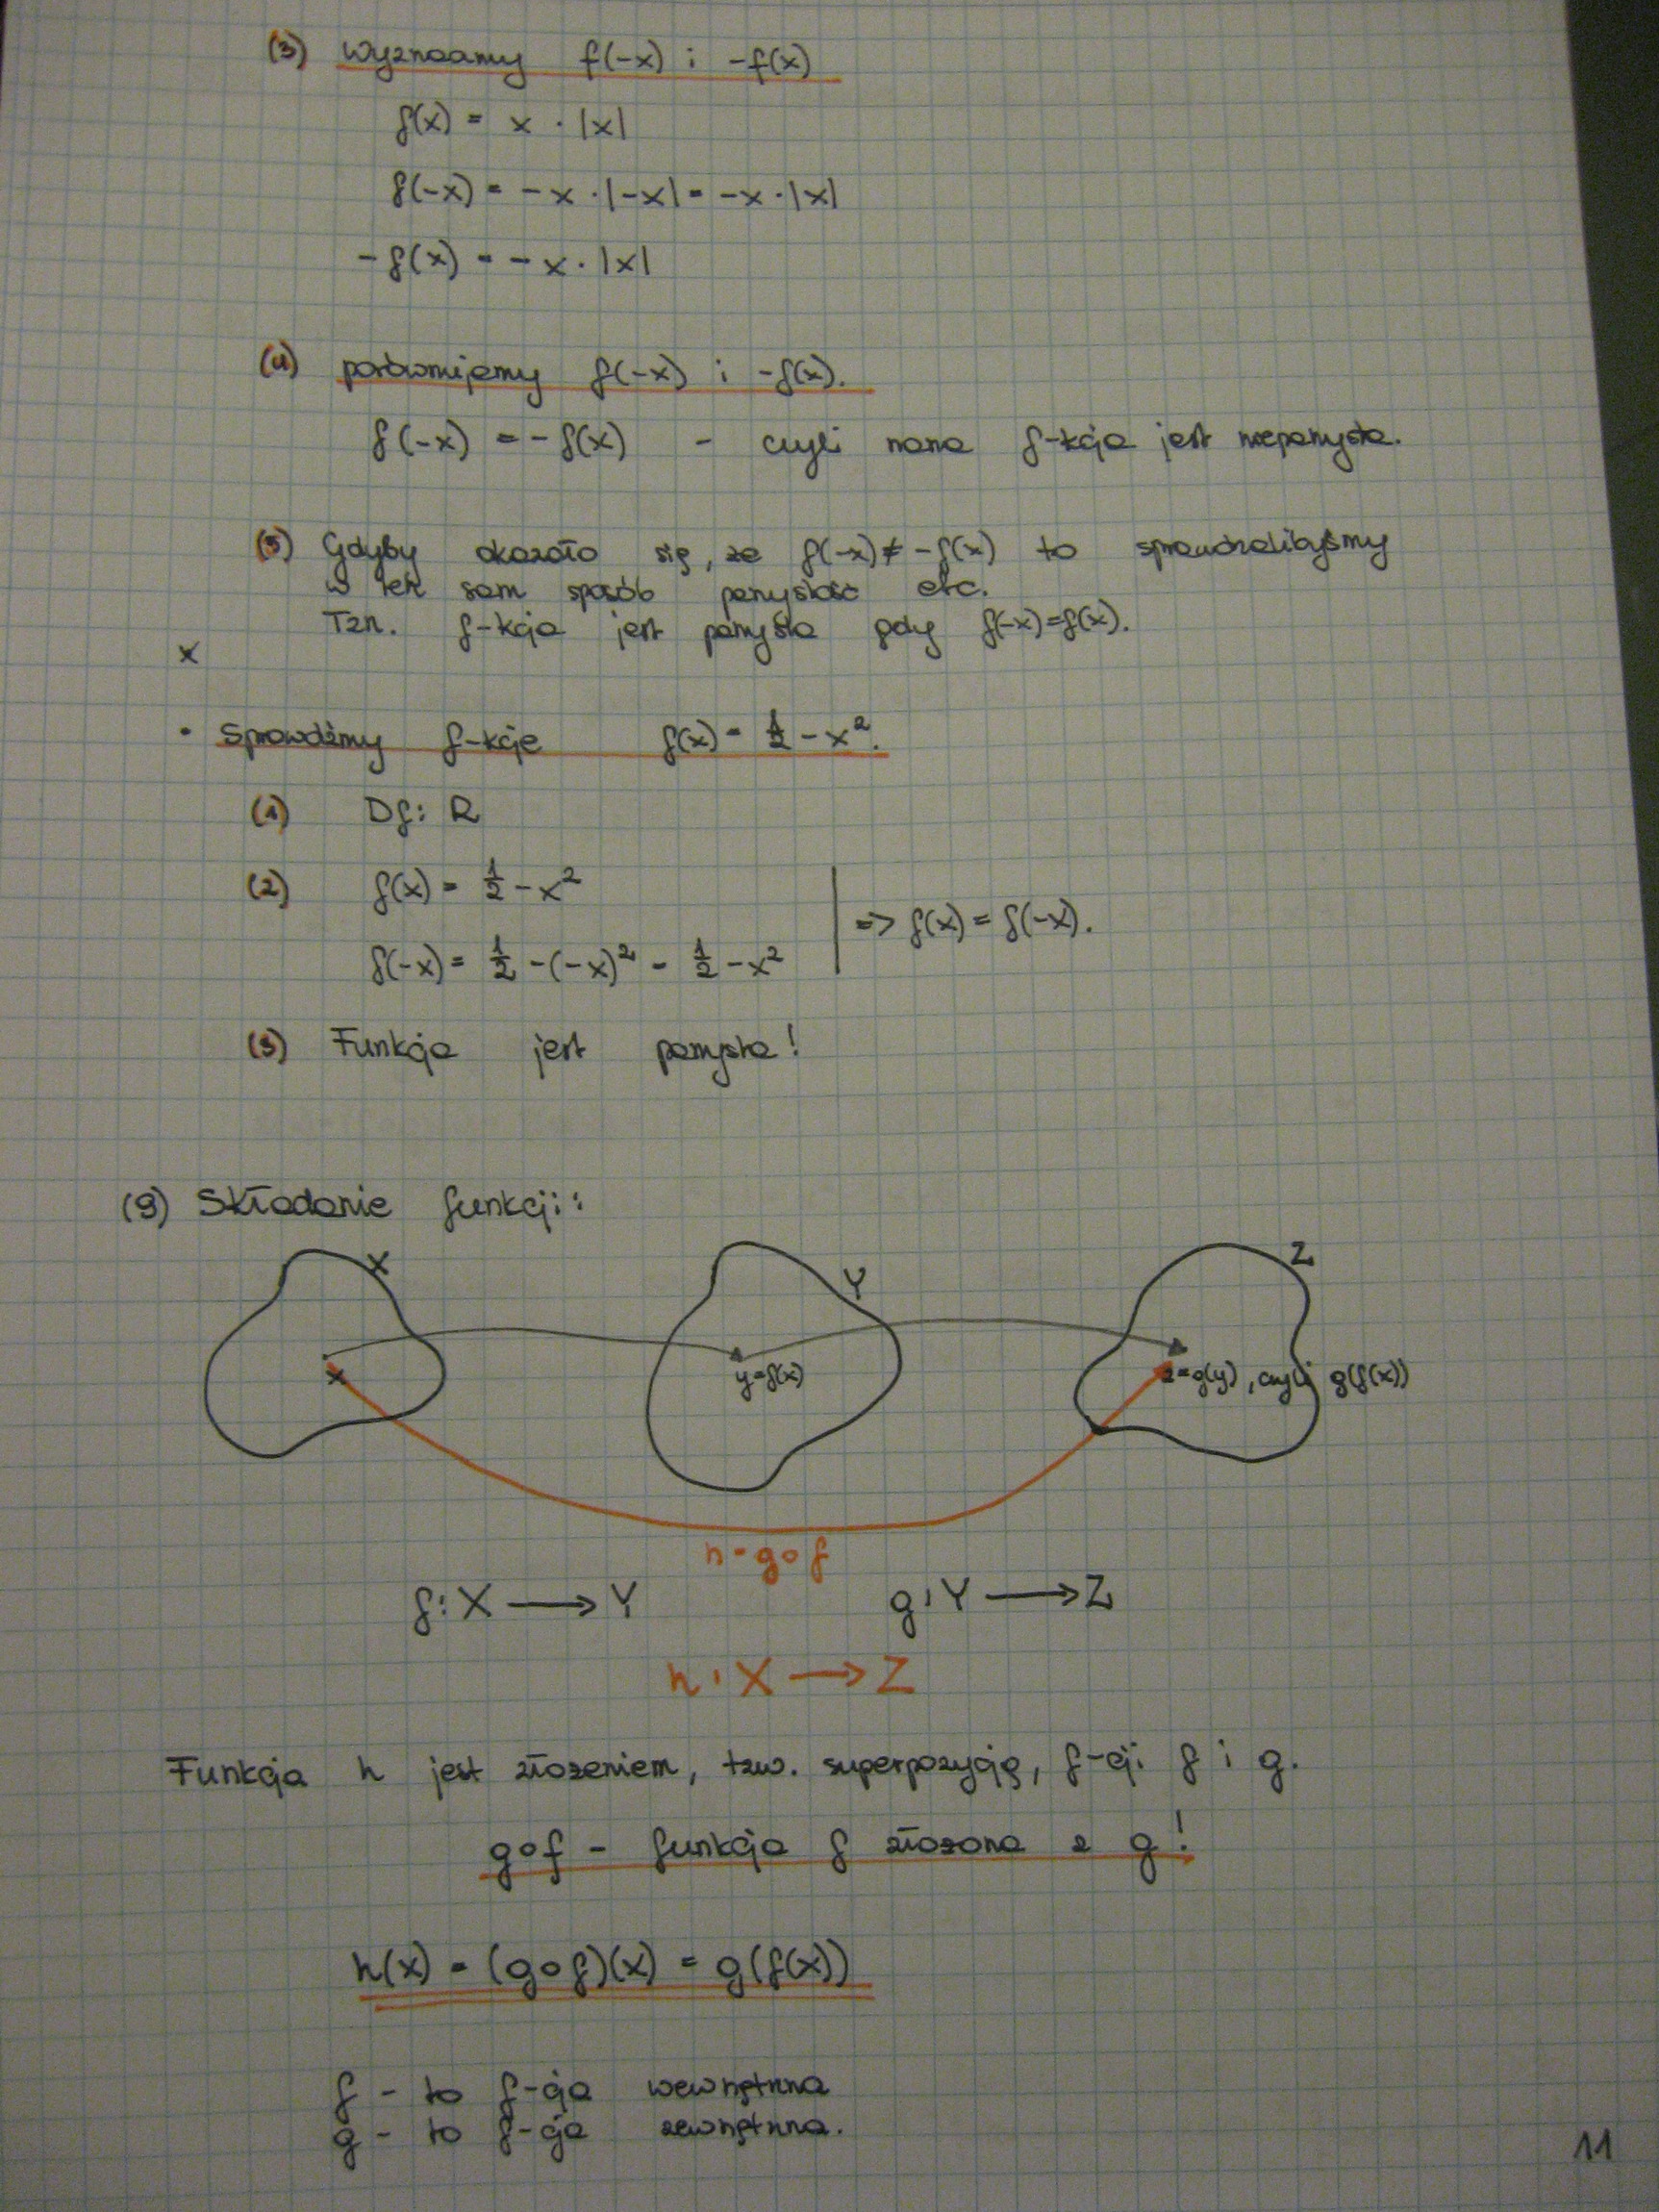 (3) Wyznaczamy f(-x) i -f(x)
f(x) = x · |x|
f(-x) = -x · |-x| = -x · |x|
-f(x) = -x · |x|
(4) porównujemy f(-x) i -f(x).
f(-x) = -f(x) - czyli nasza f-kcja jest nieparzysta.
(5) Gdyby okazało się, że f(-x) ≠ -f(x) to sprawdzalibyśmy
w ten sam sposób parzystość etc.
Tzn. f-kcja jest parzysta gdy f(-x)=f(x).
x
• Sprawdźmy f-kcje f(x) = 1/2 - x².
(1) Df: R
(2) f(x) = 1/2 - x²
=> f(x) = f(-x).
f(-x) = 1/2 - (-x)² = 1/2 - x²
(3) Funkcja jest parzysta!
(9) Składanie funkcji:
X Y Z
x y=f(x) z=g(y), czyli g(f(x))
h=g∘f
f: X → Y g: Y → Z
h: X → Z
Funkcja h jest złożeniem, tzw. superpozycją, f-cji f i g.
g∘f - funkcja f złożona z g!
h(x) = (g∘f)(x) = g(f(x))
f - to f-cja wewnętrzna
g - to f-cja zewnętrzna.
11